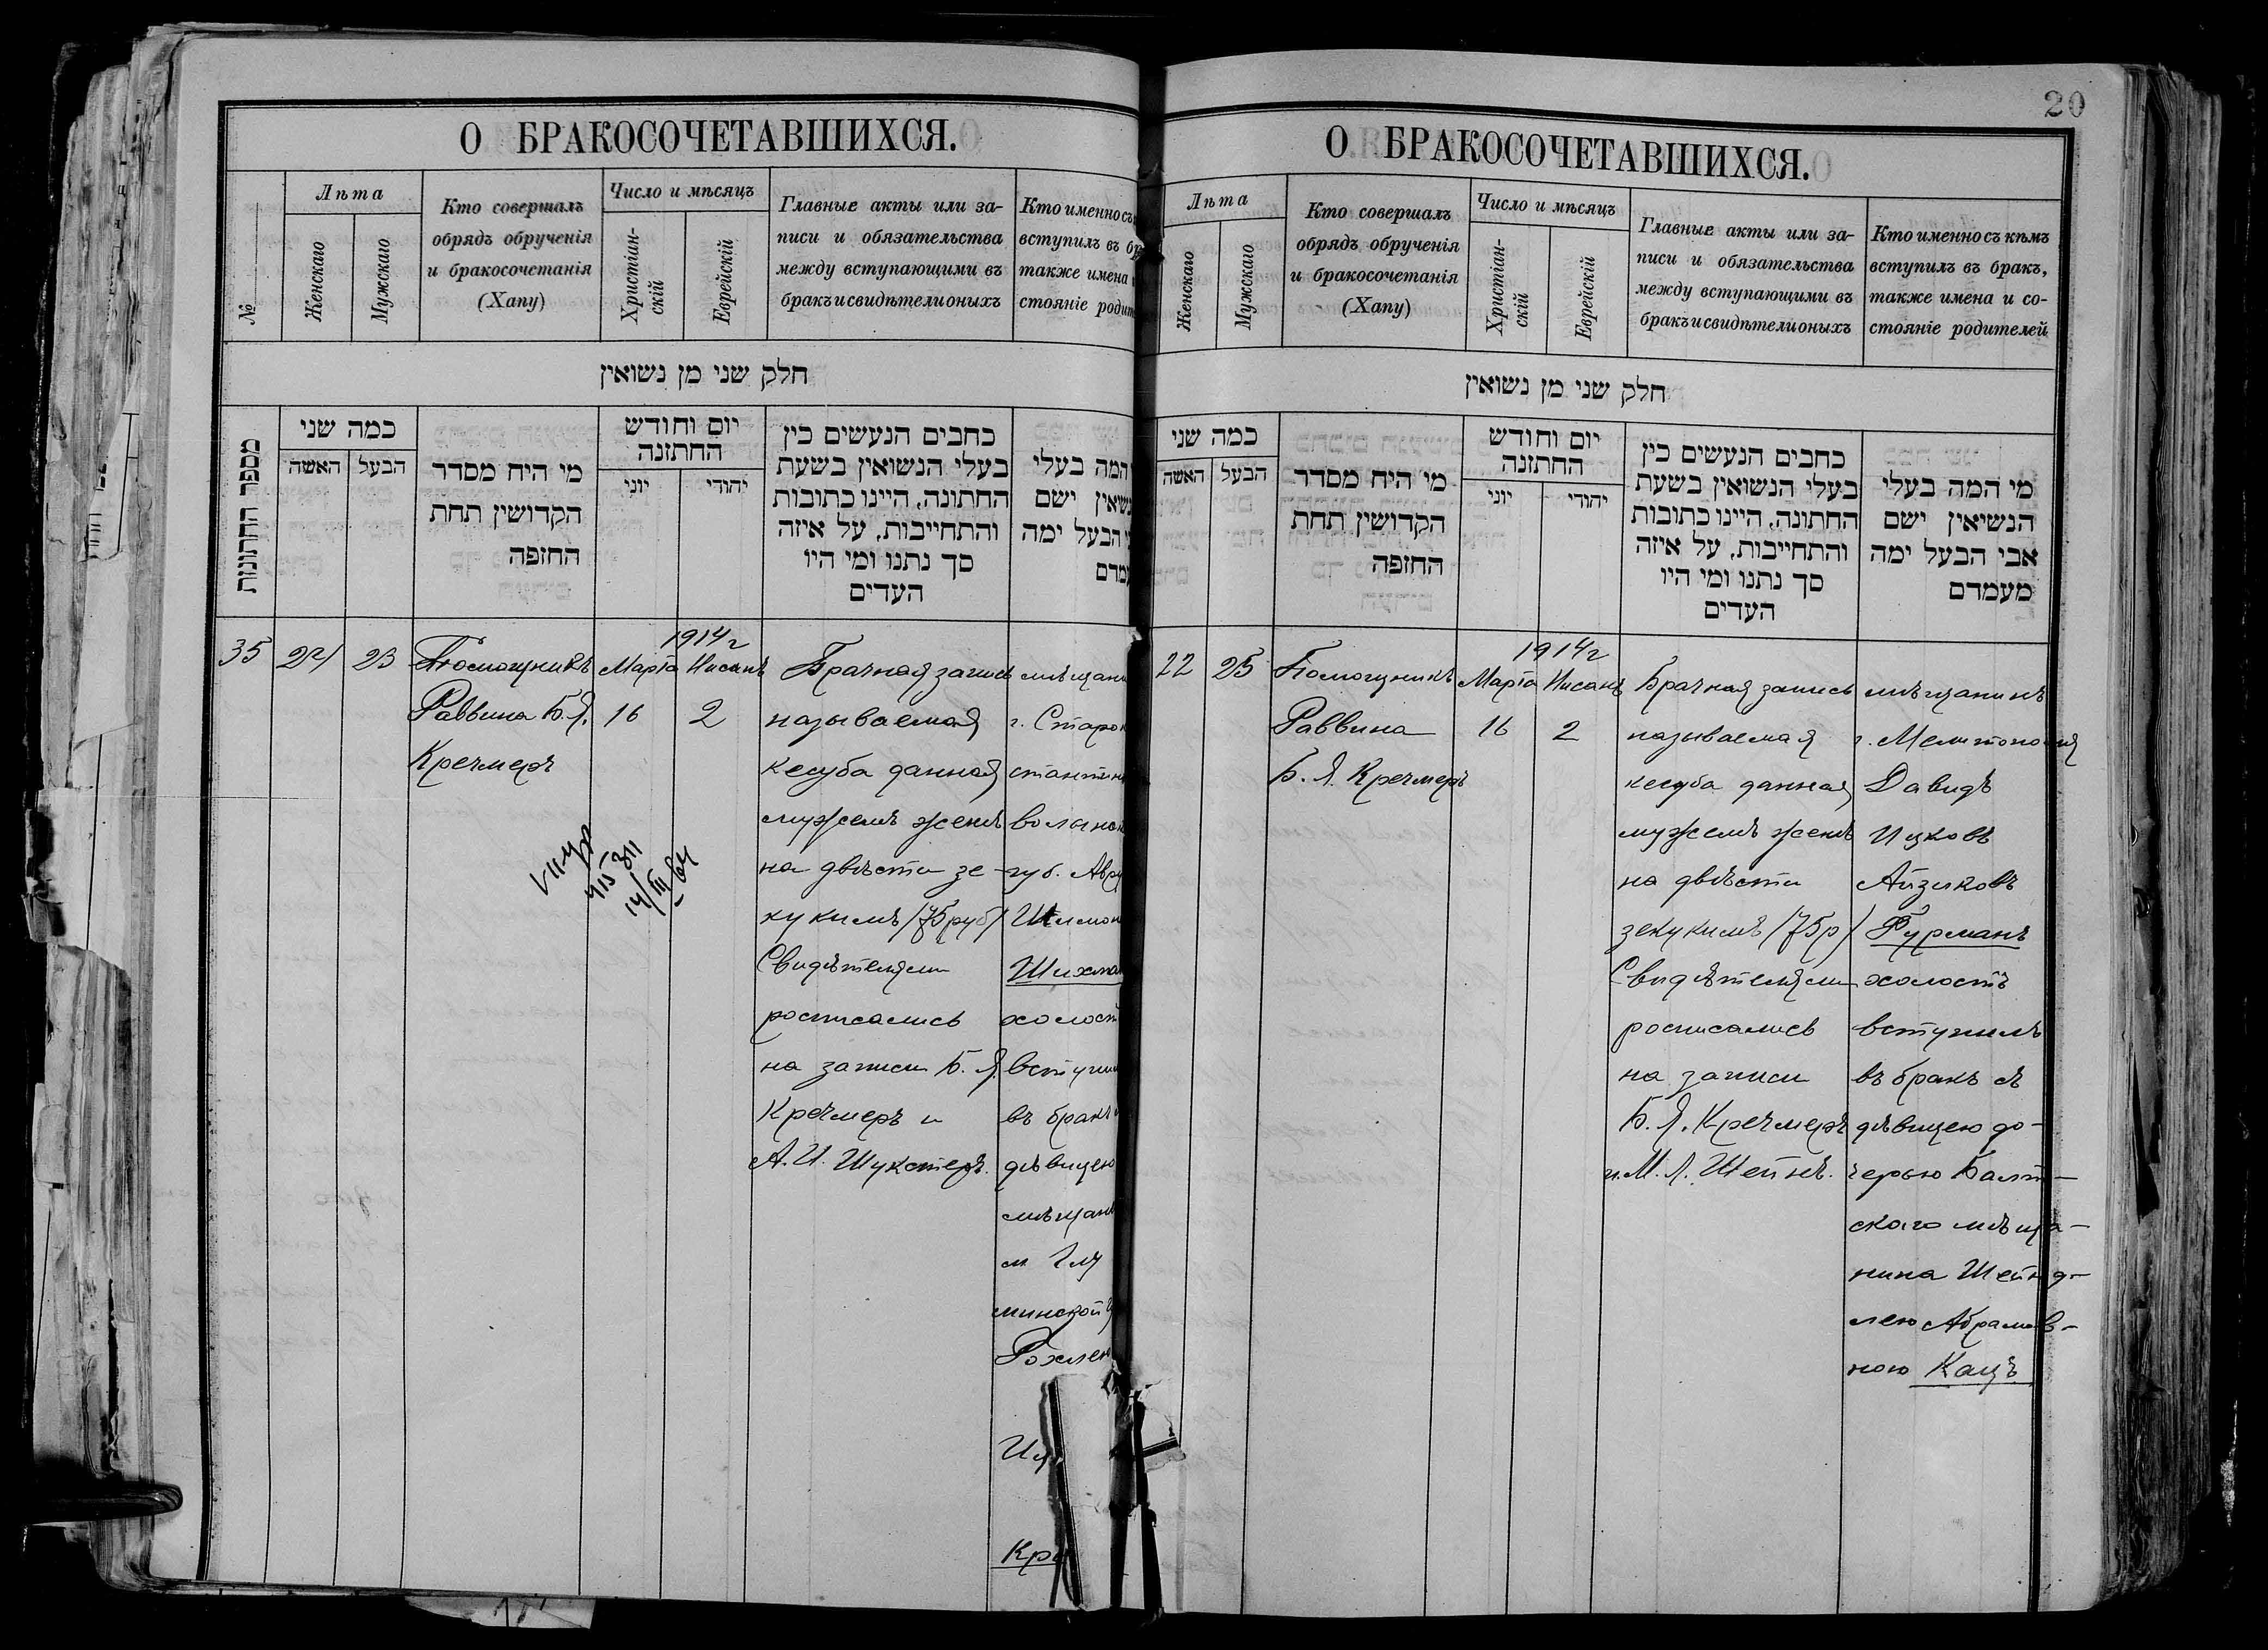 О БРАКОСОЧЕТАВШИХСЯ.
№
Лѣта
Женскаго
Мужскаго
Кто совершалъ
обрядъ обрученія
и бракосочетанія
(Хапу)
Число и мѣсяцъ
Христіан-
скій
Еврейскій
Главные акты или за-
писи и обязательства
между вступающими въ
бракъ и свидѣтели оныхъ
Кто именно съ
вступилъ въ бр
также имена
стояніе родит
חלק שני מן נשואין
מספר החתונות
כמה שני
האשה
הבעל
מי היח מסדר
הקדושין תחת
החזפה
יום וחודש
החתזנה
יוני
יהודי
כחבים הנעשים כין
בעלי הנשואין בשעת
החתונה, היינו כתובות
והתחייבות, על איזה
סך נתנו ומי היו
העדים
המה בעלי
נשאין ישם
הבעל ימה
עמדם
35
24
23
Помощникъ
Раввина Б.Я.
Кречмеръ
1914 г
Марта Нисанъ
16
2
Брачная запись
называемая
кесуба данная
мужемъ женѣ
на двѣсти зе-
кукимъ (75 руб)
Свидѣтелями
росписались
на записи Б. Я.
Кречмеръ и
А. И. Шукстеръ.
мѣщани
г. Старок
стантин
волынск
губ. Авру
Шлемон
Шихма
холост
вступи
въ бракъ
дѣвицею
мѣщан
м Глу
минской
Рохлею
Иц
Кра
14/III 64
20
О БРАКОСОЧЕТАВШИХСЯ.
Лѣта
Женскаго
Мужскаго
Кто совершалъ
обрядъ обрученія
и бракосочетанія
(Хапу)
Число и мѣсяцъ
Христіан-
скій
Еврейскій
Главные акты или за-
писи и обязательства
между вступающими въ
бракъ и свидѣтели оныхъ
Кто именно съ кѣмъ
вступилъ въ бракъ,
также имена и со-
стояніе родителей
חלק שני מן נשואין
כמה שני
האשה
הבעל
מי היח מסדר
הקדושין תחת
החזפה
יום וחודש
החתזנה
יוני
יהודי
כחבים הנעשים כין
בעלי הנשואין בשעת
החתונה, היינו כתובות
והתחייבות, על איזה
סך נתנו ומי היו
העדים
מי המה בעלי
הנשיאין ישם
אבי הבעל ימה
מעמדם
22
25
Помощникъ
Раввина
Б. Я. Кречмеръ
1914 г
Марта Нисанъ
16
2
Брачная запись
называемая
кесуба данная
мужемъ женѣ
на двѣсти
зекукимъ (75 р)
Свидѣтелями
росписались
на записи
Б. Я. Кречмеръ
и М. Л. Шейнъ.
мѣщанинъ
г. Мелитополя
Давидъ
Ицковъ
Айзиковъ
Фурманъ
холостъ
вступилъ
въ бракъ съ
дѣвицею до-
черью Балт-
скаго мѣща-
нина Шейнд-
лею Абрамов-
ною Кацъ